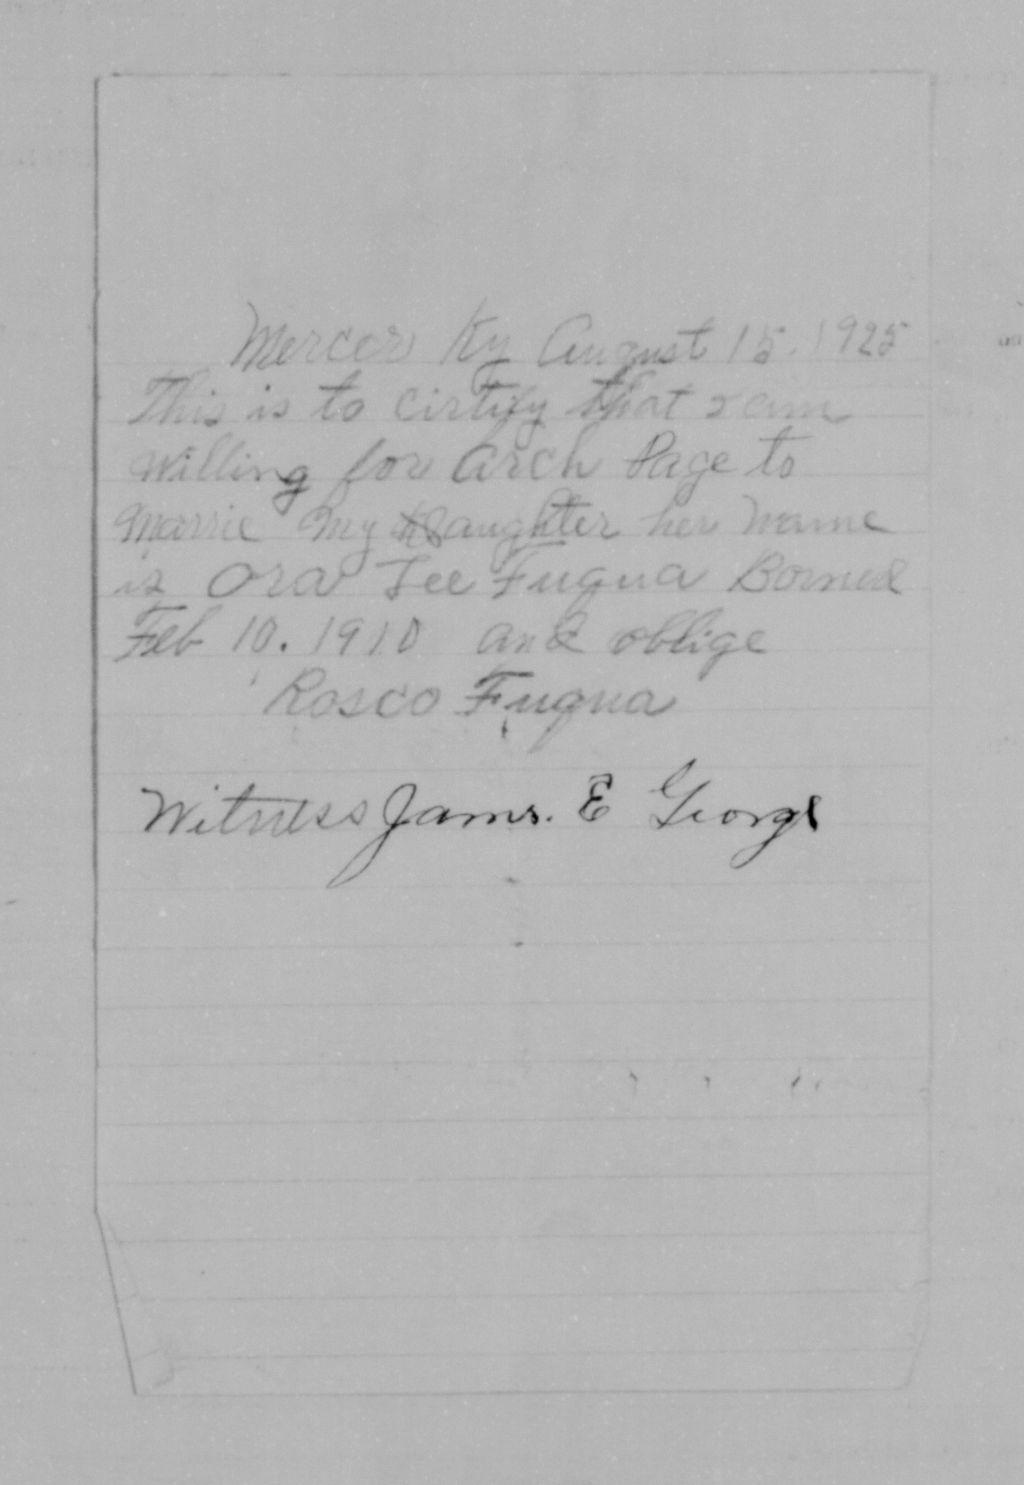 Mercer Ky August 15. 1925
This is to cirtify that I am
willing for Arch Page to
Marrie My Daughter her name
is Ora Lee Fuqua Borned
Feb 10. 1910 and oblige
Rosco Fuqua
Witness James. E George